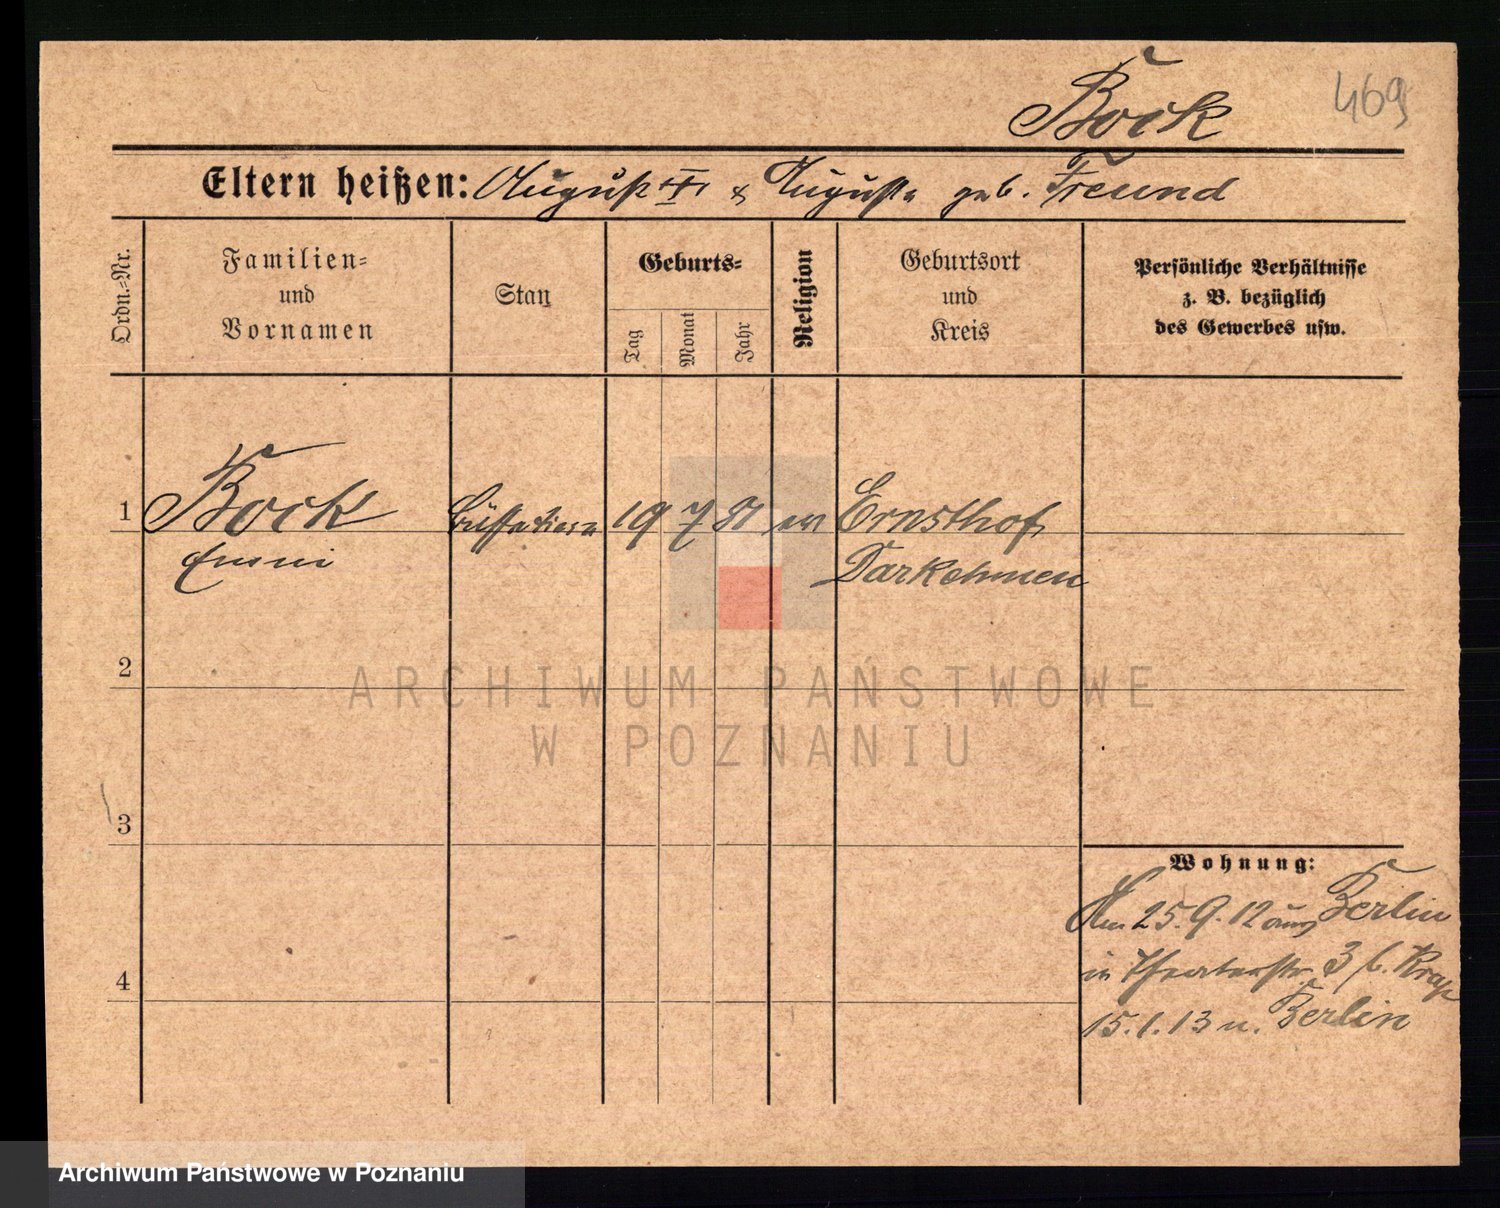 Bock
469
Eltern heißen: August & Auguste geb. Freund
Ordn.-Nr.
Familien-
und
Vornamen
Stan
Geburts-
Tag
Monat
Jahr
Religion
Geburtsort
und
Kreis
Persönliche Verhältnisse
z. B. bezüglich
des Gewerbes usw.
1 Bock 19 7 81 ev Ernsthof,
Emmi Darkehmen
2
3
4
Wohnung:
Am 25.9.12 aus Berlin
in Theaterstr. 3 b.
15.1.13 n. Berlin
ARCHIWUM PAŃSTWOWE
W POZNANIU
Archiwum Państwowe w Poznaniu